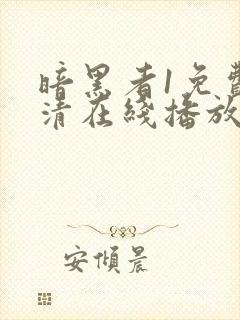 暗黑者1免费
清在线播放
安傾晨